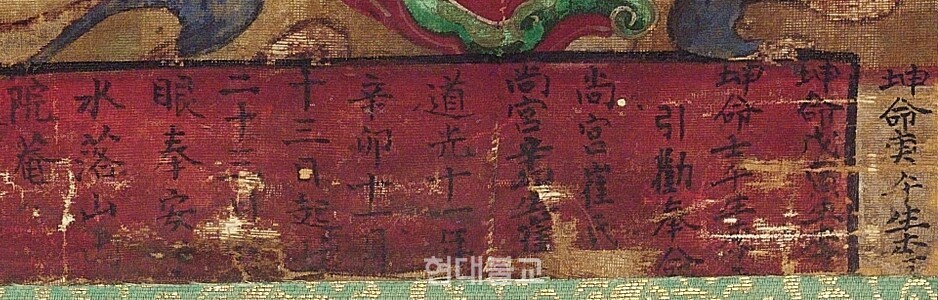 坤命庚午生
坤命戊
坤命壬午生
引勸奉
尚宮崔氏
尚宮
道光十一年
辛卯十一月
十三日起
二十三日
眼奉安
水落山
院菴
현대불교